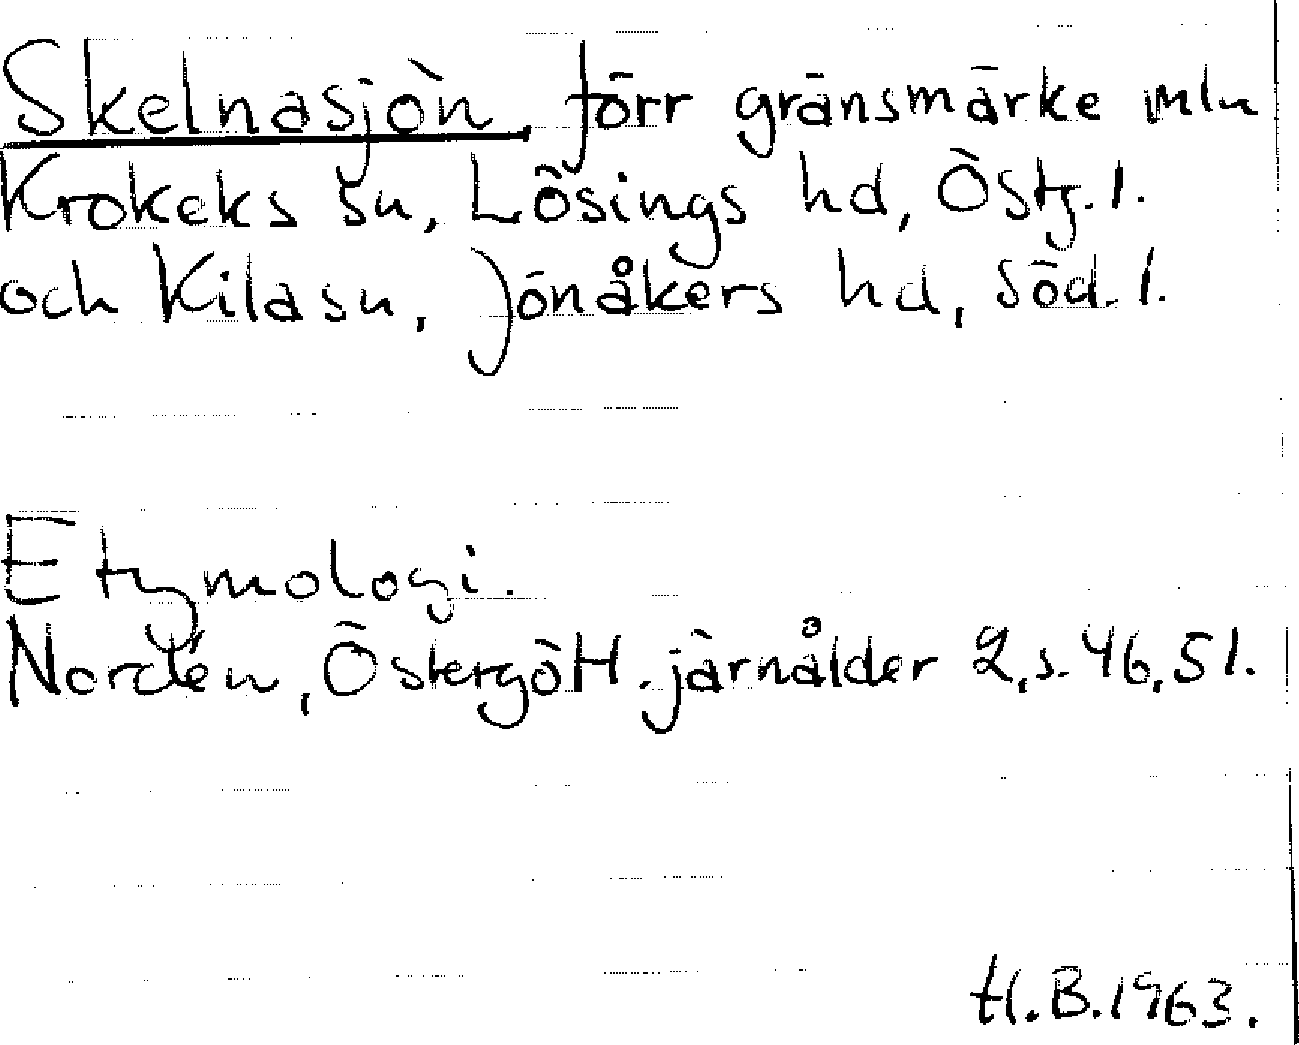 Skelnasjön förr gränsmärke mln
Krokeks sn, Lösings hd, Östg.l.
och Kila sn, Jönåkers hd, Söd.l.
Etymologi.
Nordén, Östergötl. järnålder 2, s. 46, 51.
H.B. 1963.